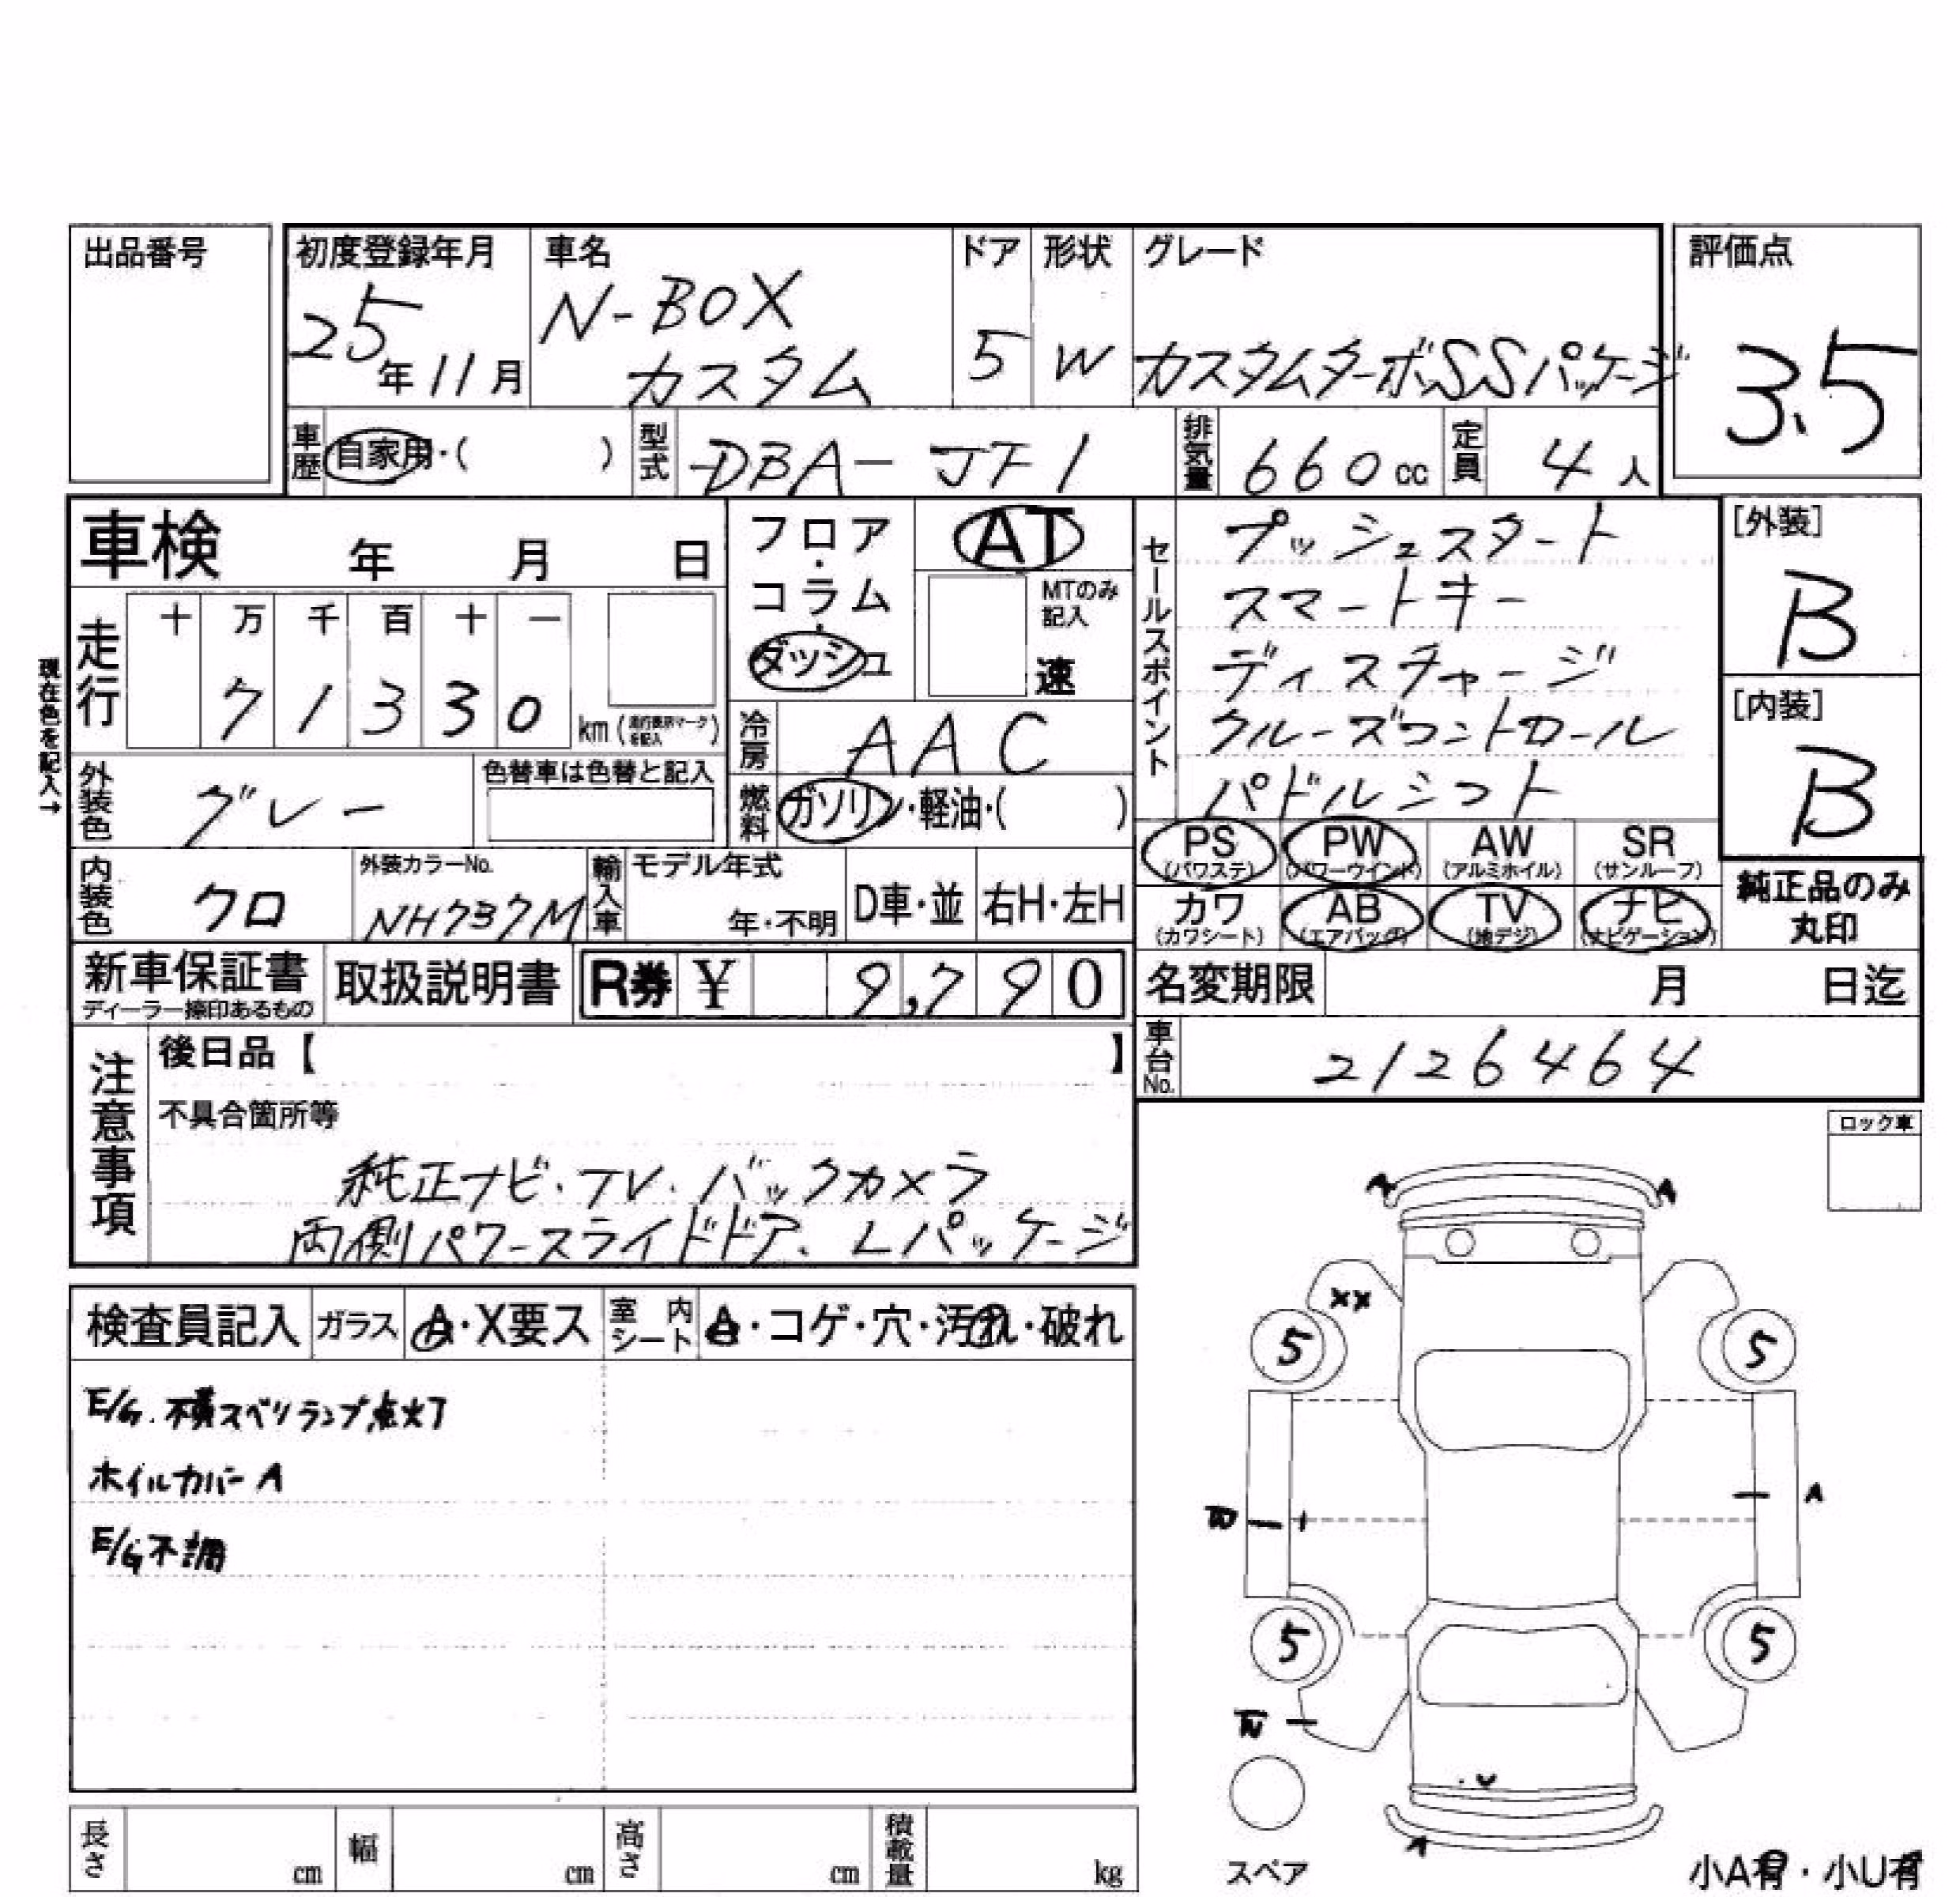 出品番号
初度登録年月 車名 ドア 形状 グレード 評価点
25年11月 N-BOX カスタム 5 W カスタムターボSSパッケージ 3.5
車歴 自家用・( ) 型式 DBA-JF1 排気量 660cc 定員 4人
車検 年 月 日
フロア・コラム・ダッシュ
AT
MTのみ記入
速
セールスポイント
プッシュスタート
スマートキー
ディスチャージ
クルーズコントロール
パドルシフト
[外装]
B
[内装]
B
現在色を記入→
走行 十 万 千 百 十 一
7 1 3 3 0 km
冷房 AAC
外装色 グレー 色替車は色替と記入
燃料 ガソリン・軽油・( )
PS (パワステ) PW (パワーウインド) AW (アルミホイル) SR (サンルーフ)
カワ (カワシート) AB (エアバッグ) TV (地デジ) ナビ (ナビゲーション)
純正品のみ丸印
内装色 クロ 外装カラーNo. NH737M 輸入車 モデル年式 年・不明 D車・並 右H・左H
新車保証書 ディーラー捺印あるもの 取扱説明書 R券 ¥ 9,790
名変期限 月 日迄
車台No. 2126464
注意事項
後日品【 】
不具合箇所等
純正ナビ・TV・バックカメラ
両側パワースライドドア、Lパッケージ
ロック車
検査員記入 ガラス A・X要ス 室内シート A・コゲ・穴・汚れ・破れ
E/G. 横スベリランプ点灯
ホイルカバー A
E/G不調
A A
XX
5 5
W A
5 5
W
U
A
スペア
長さ cm 幅 cm 高さ cm 積載量 kg
小A有・小U有